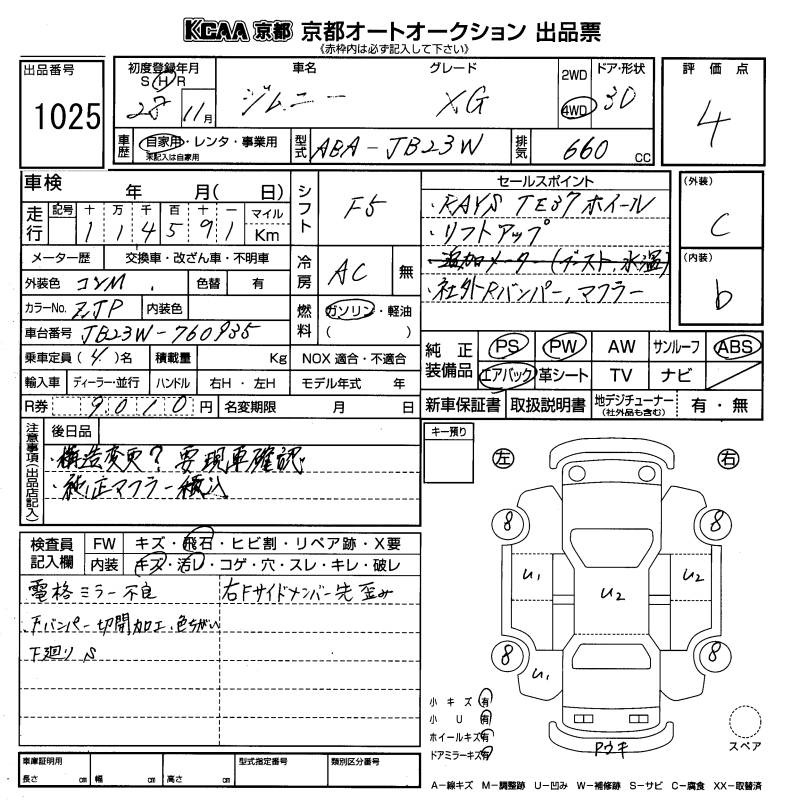 KCAA 京都 京都オートオークション 出品票
《赤枠内は必ず記入して下さい》
出品番号 1025
初度登録年月 車名 グレード 2WD ドア・形状 評価点
S H R 28 11月 ジムニー XG 4WD 3D 4
車歴 自家用・レンタ・事業用 型式 ABA-JB23W 排気 660 CC
未記入は自家用
車検 年 月( 日) シフト F5 セールスポイント (外装)
走行 記号 十 万 千 百 十 一 マイル ・RAYS TE37 ホイール C
1 1 4 5 9 1 Km ・リフトアップ
メーター歴 交換車・改ざん車・不明車 冷房 AC 無 ・追加メーター(ブースト,水温) (内装)
外装色 コンM. 色替 有 ・社外Rバンパー,マフラー b
カラーNo. ZJP 内装色 燃料 ガソリン・軽油
車台番号 JB23W-760935 ( )
乗車定員 (4)名 積載量 Kg NOX 適合・不適合 純正装備品 PS PW AW サンルーフ ABS
輸入車 ディーラー・並行 ハンドル 右H・左H モデル年式 年 エアバック 革シート TV ナビ
R券 9010円 名変期限 月 日 新車保証書 取扱説明書 地デジチューナー 有・無
(社外品も含む)
注意事項(出品店記入) 後日品 キー預り
・構造変更? 要現車確認 左 右
・純正マフラー積込
検査員記入欄 FW キズ・飛石・ヒビ割・リペア跡・X要
内装 キズ・汚レ・コゲ・穴・スレ・キレ・破レ
電格ミラー不良 右Fサイドメンバー先歪み
・Fバンパー切開加工、色ちがい
下廻りS
8 8
U1 U2 U2
8 8
U1
小キズ 有
小U 有
ホイールキズ 有
ドアミラーキズ 有
Pウキ スペア
車庫証明用 型式指定番号 類別区分番号
長さ cm 幅 cm 高さ cm
A-線キズ M-調整跡 U-凹み W-補修跡 S-サビ C-腐食 XX-取替済